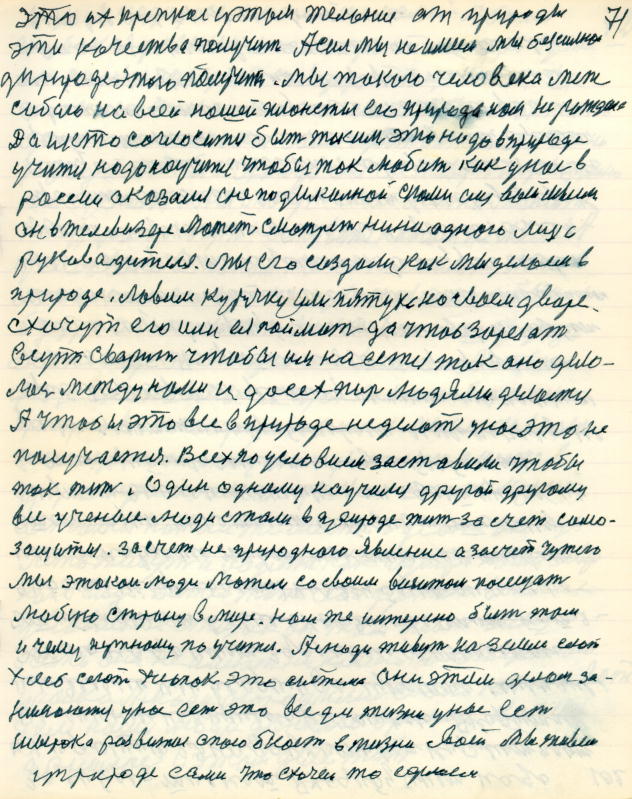 71
Это их крепкое и этом тельние от природы
эти качества получит А сил мы не имеем мы бессильны
в природе этого получить. Мы такого человека меж
собою на всей нашей планете его природа нам не рождала
Да и кто согласится быть таким, это надо в природе
учится надо научится чтобы так любит как у нас в
россии оказался с неподшколной сками свой
он в телевизоре может смотрет ни на одного лицо
руководителя. Мы его создали как мы делаем в
природе. Ловим курочку или пятуха на своем дворе.
схочут его или ея поймат да чтоб зарезат
суп сварит чтобы им насется так оно дело-
лос между нами и до сех пор людями делается
А чтобы это все в природе не делат у нас это не
получается. Всех по условием заставили чтобы
так жит. Один одному научили другой другому
все ученые люди стали в природе жит за счет само-
защиты. За счет не природного явление а за счет чужого
мы этакои люди можем со своим визитом посещат
любую страну в мире. нам же интерено быт там
и чему нужному по учится. А люди живут на земле сеют
хлеб сеют хлопок это система они этим делом за-
нимаются у нас сет это все для жизни у нас есть
широка развитии способност в жизни свой мы живем
в природе сами что схочем то сделаем